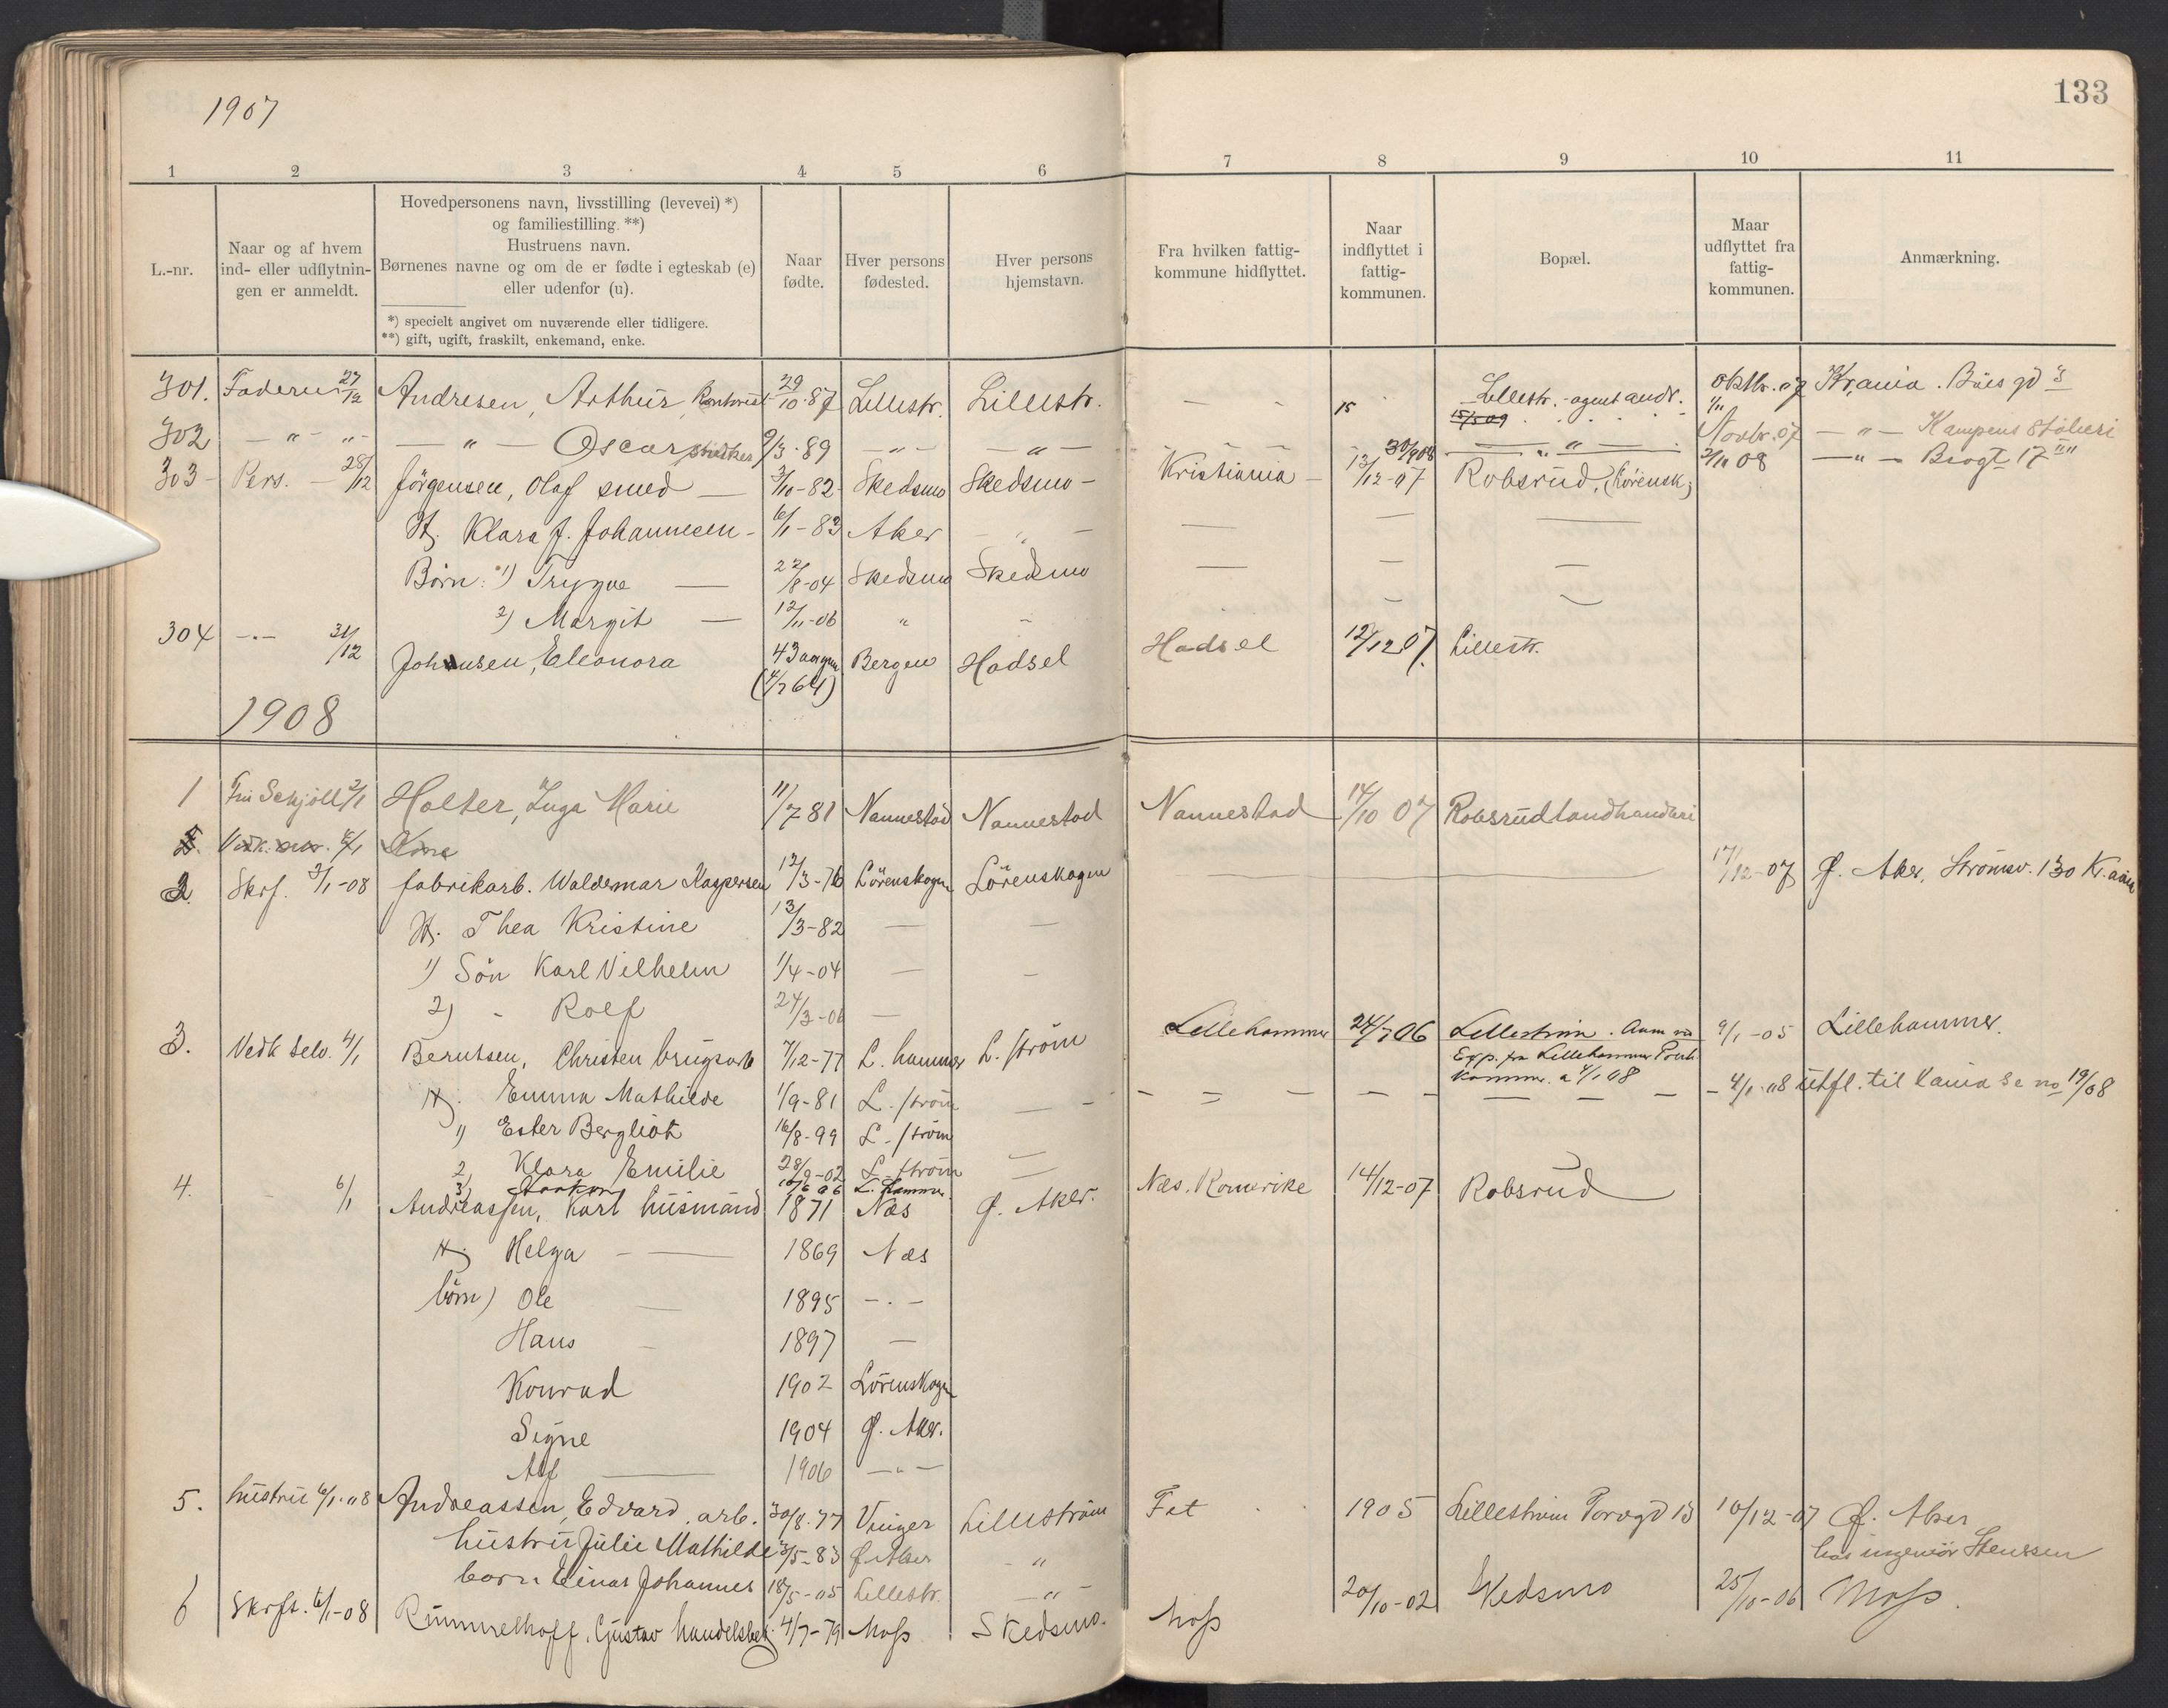 1907
133
1 2 3 4 5 6 7 8 9 10 11
L.-nr.
Naar og af hvem
ind- eller udflytnin-
gen er anmeldt.
Hovedpersonens navn, livsstilling (levevei) *)
og familiestilling. **)
Hustruens navn.
Børnenes navne og om de er fødte i egteskab (e)
eller udenfor (u).
*) specielt angivet om nuværende eller tidligere.
**) gift, ugift, fraskilt, enkemand, enke.
Naar
fødte.
Hver persons
fødested.
Hver persons
hjemstavn.
Fra hvilken fattig-
kommune hidflyttet.
Naar
indflyttet i
fattig-
kommunen.
Bopæl.
Maar
udflyttet fra
fattig-
kommunen.
Anmærkning.
301. Faderen 27/12 Andresen, Arthur 29/10-87 Lillestr. Lillestr. — — Lillestr. - agent andr. oktbr. 07 Kr,ania. Büesgd 3
302 — " — " — — " — Oscar 9/3-89 — " — — " — 15/5 09 — " — Novbr. 07 — " — Kampens Støberi
303 - Pers. — 28/12 Jörgensen, Olaf smed — 3/10-82 Skedsmo Skedsmo - Kristiania — 13/12-07 Robsrud, (Lörensk) 08 — " — Brogt 17
H. Klara J. Johannesen - 6/1-83 Aker - " -
Börn: 1) Trygve — 22/8-04 Skedsmo Skedsmo
2) Margit — 12/11-06 "
304 - " - 31/12 Johansen, Eleonora 43 aar Bergen Hadsel Hadsel 12/12 07. Lillestr.
(4/7 64)
1908
1 Fru Schjöll 2/1 Holter, Inga Marie 11/7 81 Nannestad Nannestad Nannestad 14/10 07 Robsrud landhandleri
2. Skrf. 3/1-08 fabrikarb. Waldemar Kaspersen 12/3-76 Lörenskogen Lörenskogen — 17/12-07 Ø. Aker, Strömsv. 130 Kr.
H. Thea Kristine 13/3-82 — —
1) Sön Karl Vilhelm 1/4-04 — -
2) - Rolf 24/3-06 —
3. Vedk selv. 4/1 Berntsen, Christen brugsarb 7/12-77 L. hammer L. ström Lillehammer 24/7 06 Lilleström. 9/1-05 Lillehammer.
Exp. fra Lillehammer
komm. a 4/1 08
H. Emma Mathilde 1/9-81 L. ström — - 4/1-08 utfl. til Kania se no 19/08
1) Ester Bergliot 16/8-99 L. ström
2, Klara Emilie 28/9-02 L. ström
3, Haakon 06 L. hammer
4. - 6/1 Andreassen, Karl husmand 1871 Næs Ø. Aker. Næs. Romerike 14/12-07 Robsrud
H. Helga — 1869 Næs
börn) Ole — 1895 - " -
Hans - 1897 —
Konrad 1902 Lörenskogen
Signe 1904 Ø. Aker.
Alf — 1906 — " —
5. hustru 6/1-08 Andreassen, Edvard, arb. 30/8-77 Vinger Lilleström Fet 1905 Lilleström Torvgd 13 10/12-07 Ø. Aker
hustru Julie Mathilde 3/5-83 Ø Aker - " hos ingeniör Stenssen
barn Einar Johannes 18/5-05 Lillestr. - " -
6 Skrft. 6/1-08 Rummelhoff, Gustav handelsbet. 4/7-79 Moss Skedsmo. Moss 20/10-02 Skedsmo 25/10-06 Moss.